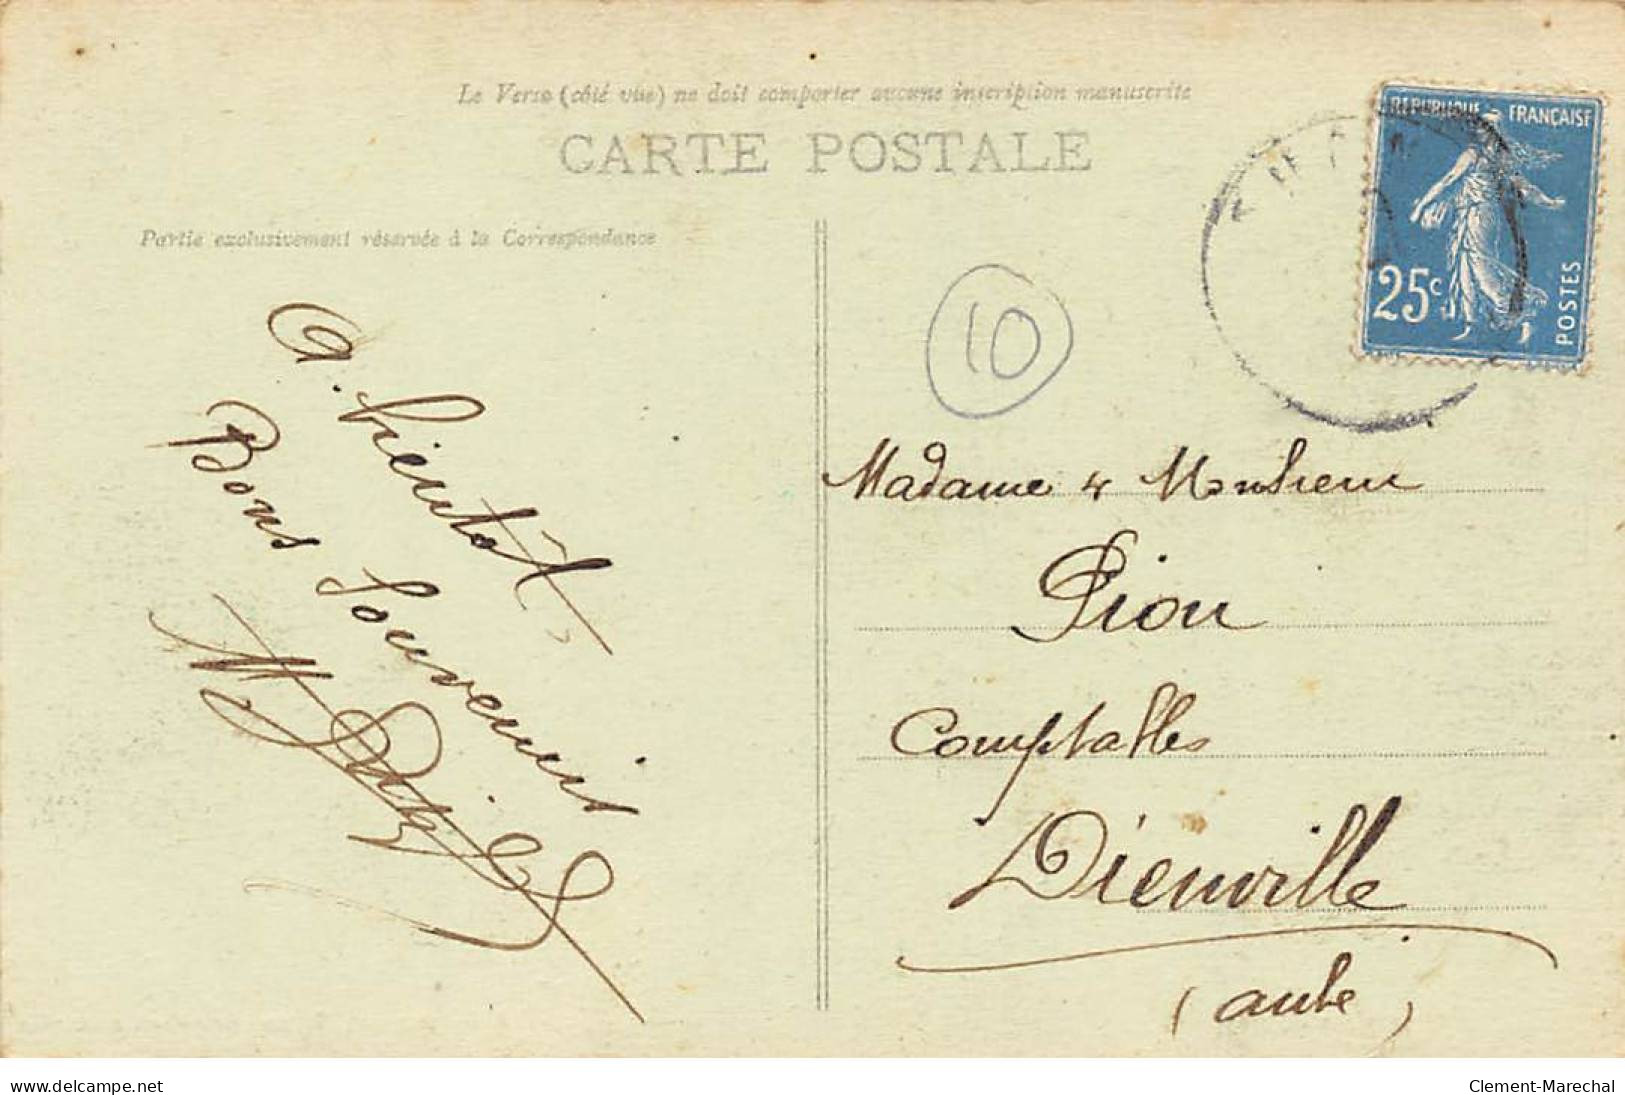 Le Verso (côté vue) ne doit comporter aucune inscription manuscrite
CARTE POSTALE
Partie exclusivement réservée à la Correspondance
REPUBLIQUE FRANÇAISE
25c
POSTES
10
A. bientôt
Bons Souvenirs
Madame & Monsieur
Piou
Comptables
Dienville
(aube)
www.delcampe.net
Clement-Marechal